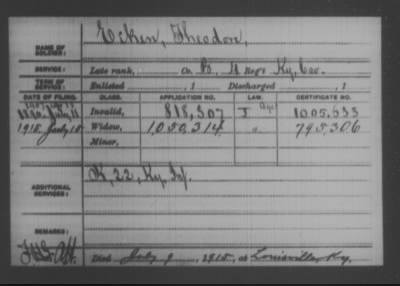 NAME OF SOLDIER: Ecken, Theodore,
SERVICE: Late rank, Co. B, 4 Reg't Ky. Cav.
TERM OF SERVICE: Enlisted , 1 Discharged , 1
DATE OF FILING. CLASS. APPLICATION NO. LAW. CERTIFICATE NO.
1890. July 11 Invalid, 818,307 J 1005.533
1918. July 18 Widow, 1,050,314 " 795,306
Minor,
ADDITIONAL SERVICES: K, 22, Ky. Inf.
REMARKS:
Died July , 1918, at Louisville, Ky.